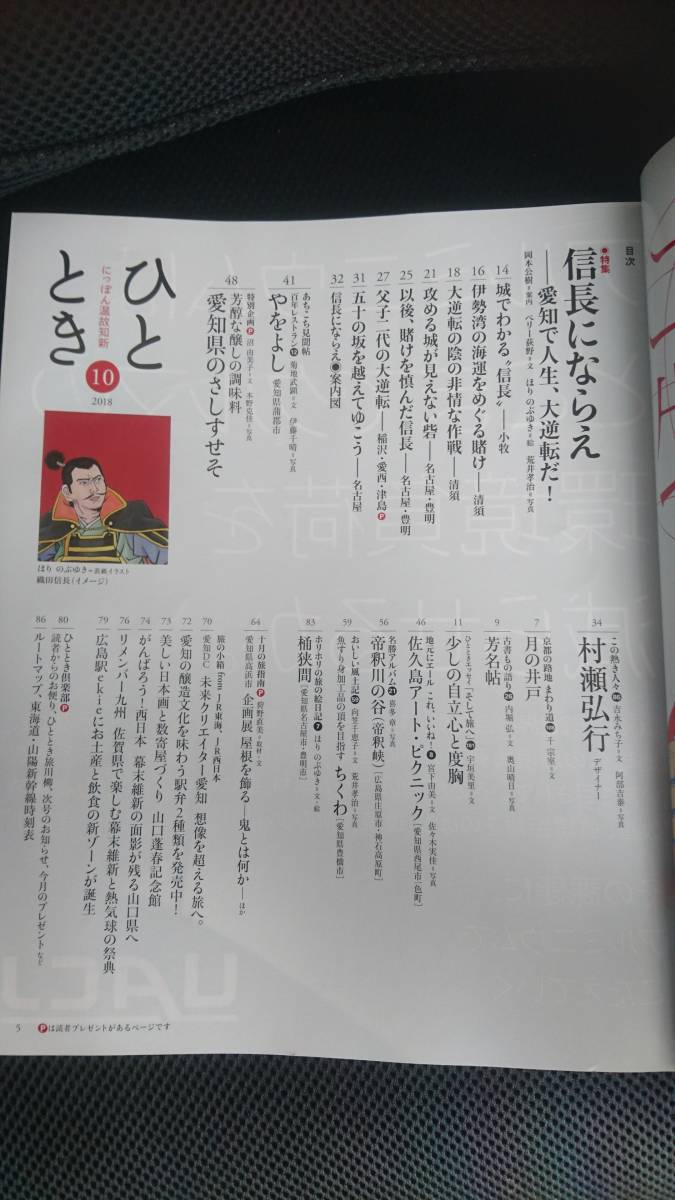 目次
●特集
信長にならえ
――愛知で人生、大逆転だ!
岡本公樹=案内 ペリー荻野=文 ほり のぶゆき=絵 荒井孝治=写真
14 城でわかる〝信長〟――小牧
16 伊勢湾の海運をめぐる賭け――清須
18 大逆転の陰の非情な作戦――清須
21 攻める城が見えない砦――名古屋・豊明
25 以後、賭けを慎んだ信長――名古屋・豊明
27 父子二代の大逆転――稲沢・愛西・津島 P
31 五十の坂を越えてゆこう――名古屋
32 信長にならえ●案内図
あちこち見聞帖
41 百年レストラン 12 菊地武顕=文 伊藤千晴=写真
やをよし 愛知県蒲郡市
48 特別企画 P 沼 由美子=文 本野克佳=写真
芳醇な醸しの調味料
愛知県のさしすせそ
ひととき
にっぽん温故知新
10
2018
ほり のぶゆき=表紙イラスト
織田信長(イメージ)
34 この熱き人々 吉永みち子=文 阿部吉泰=写真
村瀬弘行 デザイナー
7 京都の路地 まわり道 千 宗室=文
月の井戸
9 古書もの語り 26 内堀 弘=文 奥山晴日=写真
芳名帖
11 ひとときエッセイ「そして旅へ」 宇垣美里=文
少しの自立心と度胸
46 地元にエール これ、いいね! 8 宮下由美=文 佐々木実佳=写真
佐久島アート・ピクニック[愛知県西尾市一色町]
56 名勝アルバム 21 喜多 章=写真
帝釈川の谷(帝釈峡)[広島県庄原市・神石高原町]
59 おいしい風土記 59 向笠千恵子=文 荒井孝治=写真
魚すり身加工品の頂を目指す ちくわ[愛知県豊橋市]
83 ホリホリの旅の絵日記 7 ほり のぶゆき=文・絵
桶狭間[愛知県名古屋市・豊明市]
64 十月の旅指南 P 狩野直美=取材・文
愛知県高浜市 企画展 屋根を飾る――鬼とは何か――ほか
旅の小箱 from JR東海、JR西日本
70 愛知DC 未来クリエイター愛知 想像を超える旅へ。
72 愛知の醸造文化を味わう駅弁2種類を発売中!
73 美しい日本画と数寄屋づくり 山口蓬春記念館
74 がんばろう!西日本 幕末維新の面影が残る山口県へ
76 リメンバー九州 佐賀県で楽しむ幕末維新と熱気球の祭典
79 広島駅ekieにお土産と飲食の新ゾーンが誕生
80 ひととき倶楽部 P
読者からのお便り、ひととき旅川柳、次号のお知らせ、今月のプレゼント など
86 ルートマップ、東海道・山陽新幹線時刻表
5 Pは読者プレゼントがあるページです